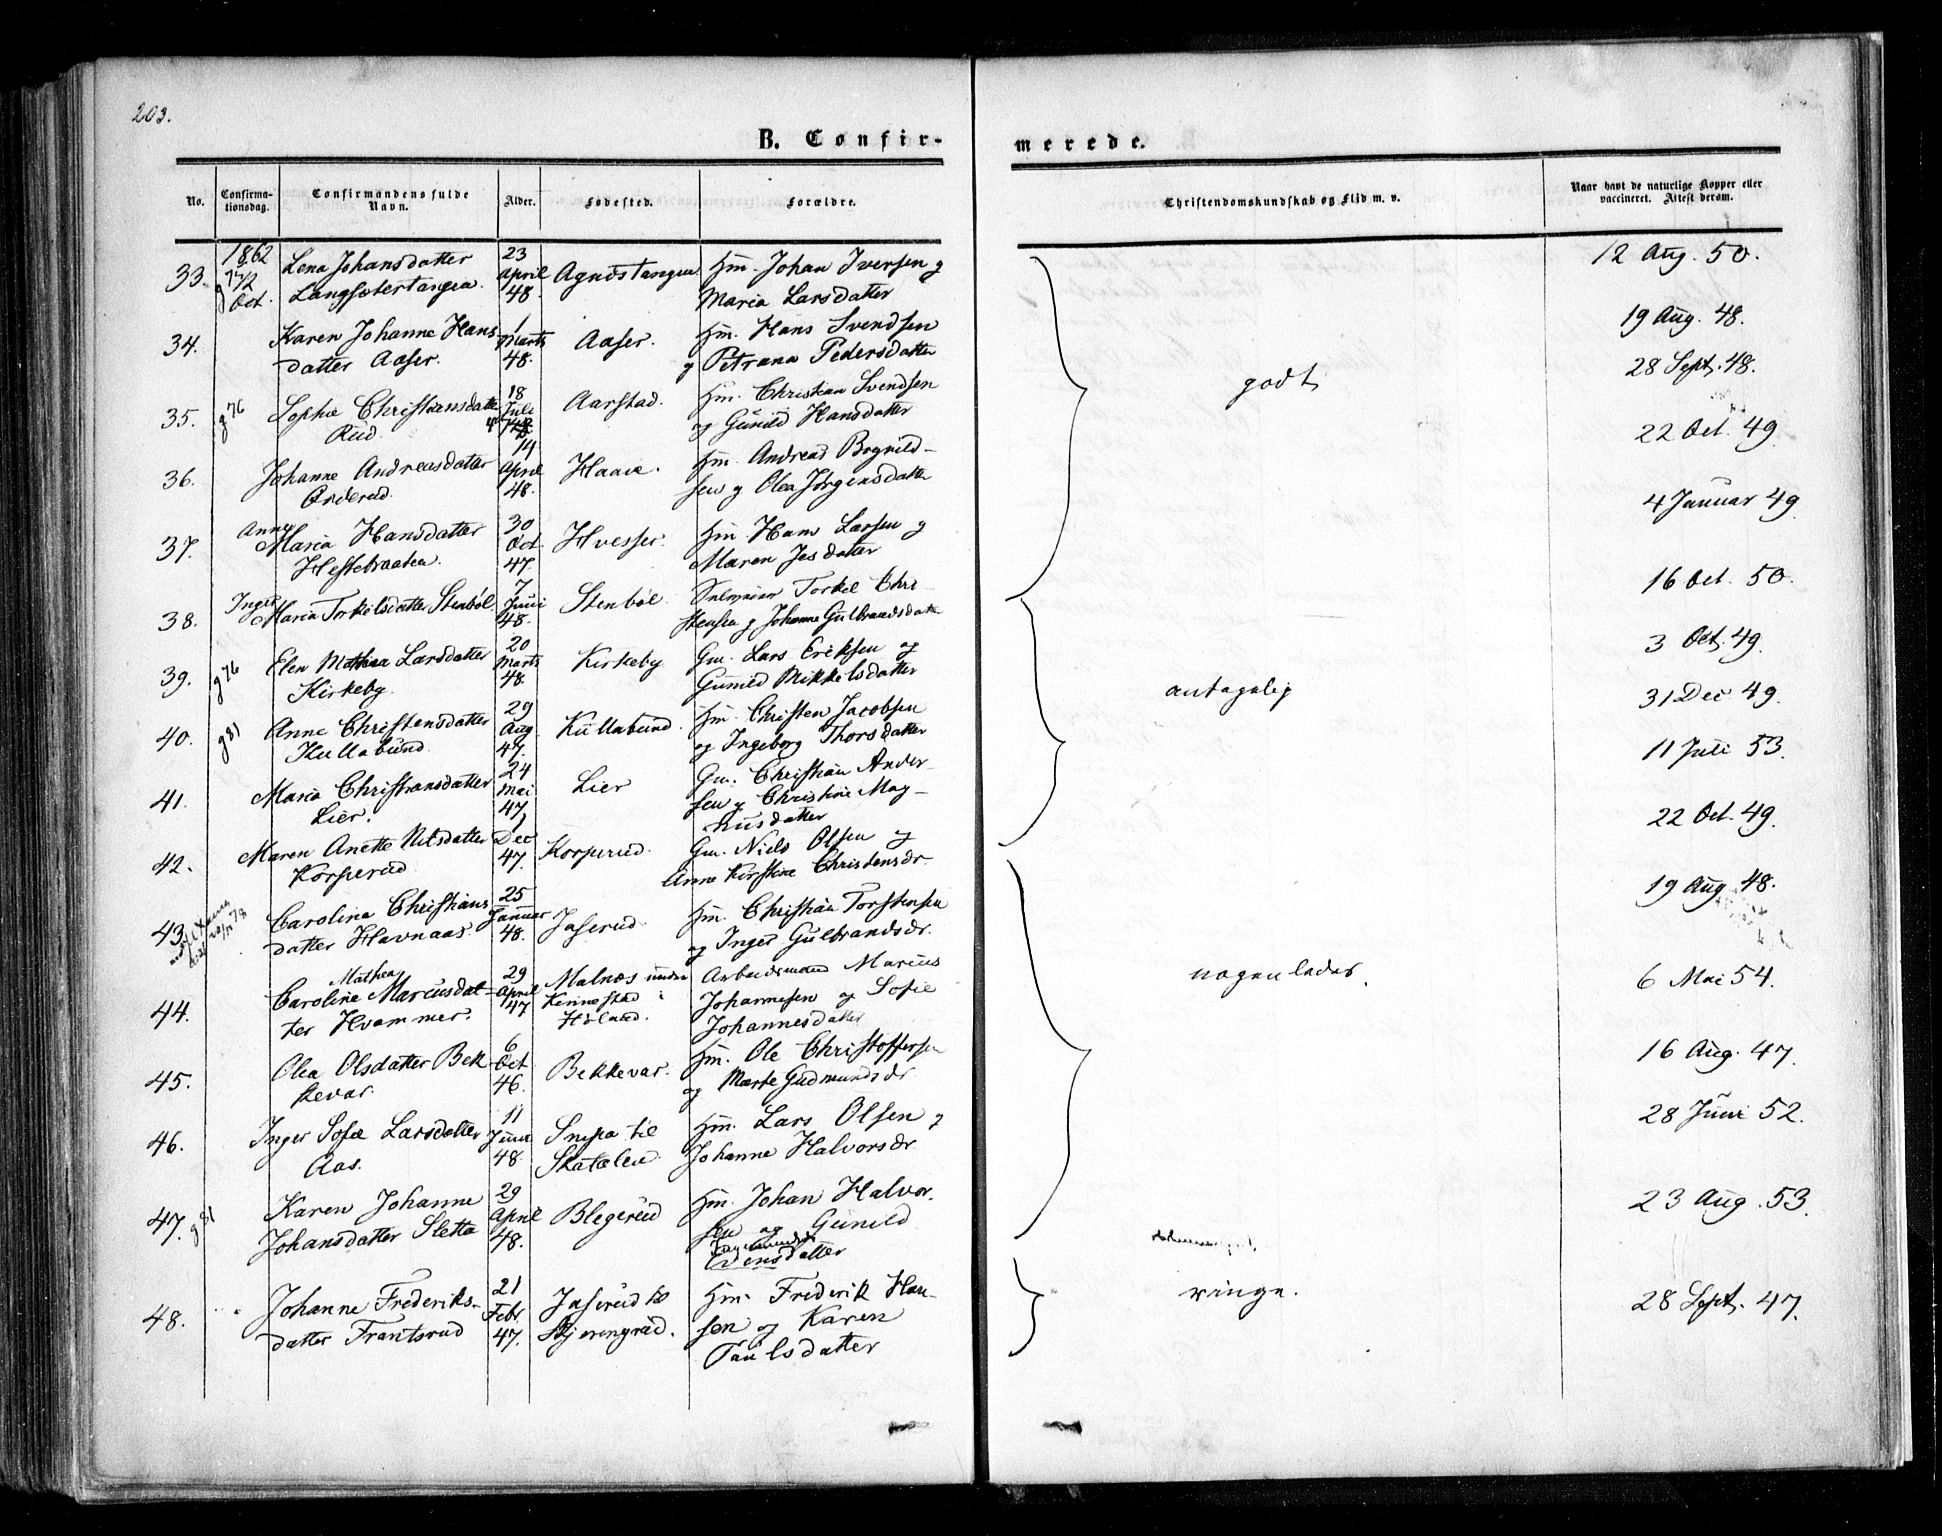 203.
B. Confir-
merede.
No.
Confirma-
tionsdag.
Confirmandens fulde
Navn.
Alder.
Fødested.
Forældre.
Christendomskundskab og Flid m. v.
Naar havt de naturlige Kopper eller
vaccineret. Attest derom.
33. 1862 Lena Johansdatter 23 Hm. Johan Iversen g 12 Aug. 50.
Oct. Langsætertangen. April 48. Agnæstangen Maria Larsdatter
34. Karen Johanne Hans 1 Marts Aaser. Hm. Hans Svendsen 19 Aug. 48.
datter Aaser. 48. g Petrana Pedersdatter
35. g76 Sophie Christiansdatter 18 Juli Aarstad. Hm. Christian Svendsen 28 Sept. 48.
Rud og Gunild Hansdatter
godt
36. Johanne Andreasdatter 14 April Haave. Hm. Andreas Bognild- 22 Oct. 49
48. sen g Olea Jørgensdatter
37. Anne Maria Hansdatter 30 Oct. Hvesser. Hm. Hans Larsen g 4 Januar 49
Hestebraaten. 47. Maren Jesdatter
38. Inger Maria Torkelsdatter Stenbøl. 7 Juni Stenbøl Torkel Chri- 16 Oct. 50.
48. stensen g Johanne Gulbrandsdatte
39. g76 Elen Mathea Larsdatter 20 Marts Kirkeby Gm. Lars Eriksen og 3 Oct. 49.
Kirkeby. 48. Gunild Mikkelsdatter
antagelig
40. g81 Anne Christensdatter 29 Aug. Kullabund. Hm. Christen Jacobsen 31 Dec 49.
Kullabund. 47. og Ingeborg Thorsdatter
41. Maria Christiansdatter 24 Mai Lier Gm. Christian Ander- 11 Juli 53.
Lier. 47. sen g Christine Mag-
nusdatter
42. Maren Anette Nilsdatter 1 Dec Korperud. Gm. Niels Olsen og 22 Oct. 49.
Korperud 47. Anne Kirstine Christensdr.
43. Carolina Christians 25 Januar Jaserud. Hm. Christian Torstensen 19 Aug. 48.
datter Havnaas. 48. og Inger Gulbrandsdr.
44. Mathea
Caroline Marcusdat- 29 April Malnæs under Arbeidsmand Marcus 6 Mai 54.
ter Hvammer. 47 Kinnestad i Johannesen og Sofie
Høland. Johannesdatter
nogenledes.
45. Olea Olsdatter Bek- 6 Oct. Bekkevar. Hm. Ole Christoffersen 16 Aug. 47.
kevar. 46. og Marte Gudmundsdr
46. Inger Sofie Larsdatter 11 Juni Snepa til Hm. Lars Olsen g 28 Juni 52.
Aas. 48. Skatelen. Johanne Halvorsdr.
47. g81 Karen Johanne 29 April Blegerud Hm. Johan Halvor- 23 Aug. 53.
Johansdatter Sletta 48. sen og Gunild
Evensdatter
48. Johanne Frederiks- 21 Febr. Jaserud Hm. Frederik Han- 28 Sept. 47.
datter Frantsrud 47. Bjerengrud. sen og Karen
Paulsdatter
ringe.